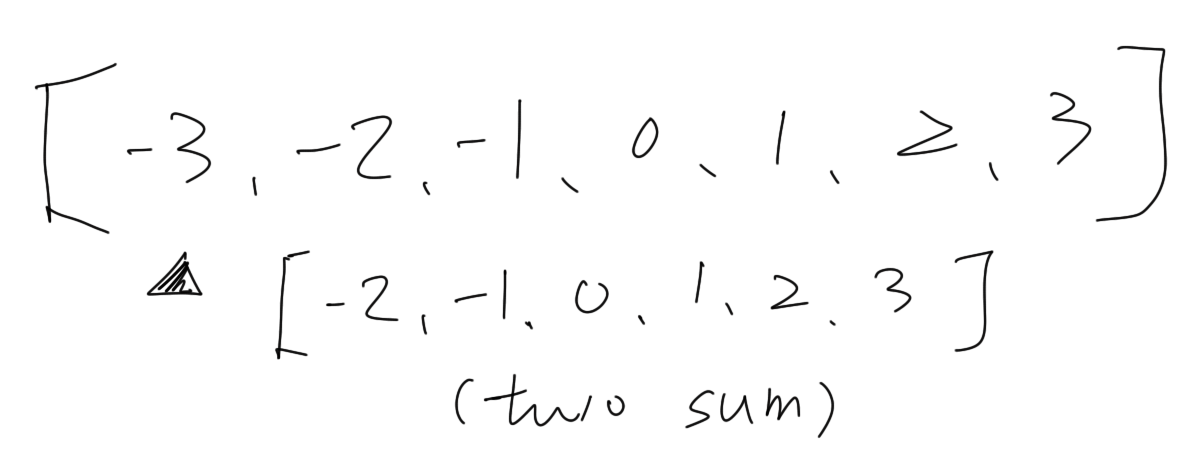 [-3, -2, -1, 0, 1, 2, 3]
[-2, -1, 0, 1, 2, 3]
(two sum)